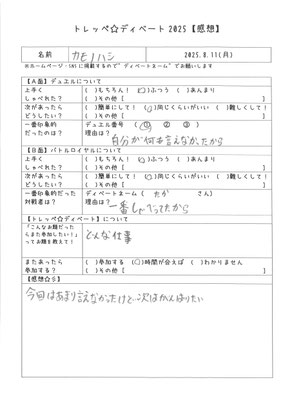 トレッペ☆ディベート2025【感想】
名前 カモノハシ 2025.8.11(月)
※ホームページ・SNSに掲載するので"ディベートネーム"でお願いします
【A面】デュエルについて
上手く ( )もちろん! (○)ふつう ( )あんまり
しゃべれた? ( )その他[ ]
次があったら ( )簡単にして! (○)同じくらいがいい ( )難しくして!
どうしたい? ( )その他[ ]
一番印象的 デュエル番号 ( ① ② ③ )
だったのは? 理由は? 自分が何も言えなかったから
【B面】バトルロイヤルについて
上手く ( )もちろん! (○)ふつう ( )あんまり
しゃべれた? ( )その他[ ]
次があったら ( )簡単にして! (○)同じくらいがいい ( )難しくして!
どうしたい? ( )その他[ ]
一番印象的だった ディベートネーム ( さん)
対戦者は? 理由は? 一番しゃべってたから
【トレッペ☆ディベート】について
「こんなお題だった
らまた参加したい!」
ってお題を教えて! どんな仕事
またあったら ( )参加する (○)時間が合えば ( )わかりません
参加する? ( )その他[ ]
【感想☆彡】
今回はあまり言えなかったけど次はがんばりたい